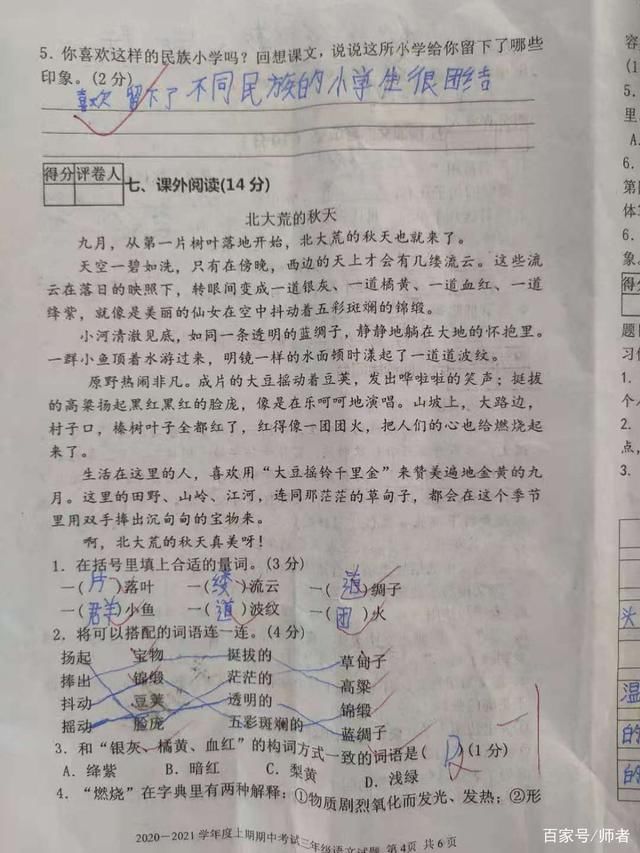 5. 你喜欢这样的民族小学吗？回想课文，说说这所小学给你留下了哪些
印象。(2 分)
喜欢 留下了 不同民族的小学生很团结
得分 评卷人
七、课外阅读(14 分)
北大荒的秋天
九月，从第一片树叶落地开始，北大荒的秋天也就来了。
天空一碧如洗，只有在傍晚，西边的天上才会有几缕流云。这些流
云在落日的映照下，转眼间变成一道银灰、一道橘黄、一道血红、一道
绛紫，就像是美丽的仙女在空中抖动着五彩斑斓的锦缎。
小河清澈见底，如同一条透明的蓝绸子，静静地躺在大地的怀抱里。
一群小鱼顶着水游过来，明镜一样的水面顿时漾起了一道道波纹。
原野热闹非凡。成片的大豆摇动着豆荚，发出哗啦啦的笑声；挺拔
的高粱扬起黑红黑红的脸庞，像是在乐呵呵地演唱。山坡上，大路边，
村子口，榛树叶子全都红了，红得像一团团火，把人们的心也给燃烧起
来了。
生活在这里的人，喜欢用“大豆摇铃千里金”来赞美遍地金黄的九
月。这里的田野、山岭、江河，连同那茫茫的草甸子，都会在这个季节
里用双手捧出沉甸甸的宝物来。
啊，北大荒的秋天真美呀！
1. 在括号里填上合适的量词。(3 分)
一(片)落叶 一(缕)流云 一(道)绸子
一(群)小鱼 一(道)波纹 一(团)火
2. 将可以搭配的词语连一连。(4 分)
扬起 宝物 挺拔的 草甸子
捧出 锦缎 茫茫的 高粱
抖动 豆荚 透明的 锦缎
摇动 脸庞 五彩斑斓的 蓝绸子
3. 和“银灰、橘黄、血红”的构词方式一致的词语是( D )(1 分)
A. 绛紫 B. 暗红 C. 梨黄 D. 浅绿
4. “燃烧”在字典里有两种解释：①物质剧烈氧化而发光、发热；②形
2020－2021 学年度上期期中考试三年级语文试题 第4页 共6页
容
1.
5.
里
A.
6.
第
体
6.
象。
得分
题目
习
1.
个
2.
点，
3.
头
温
的
的
百家号/师者